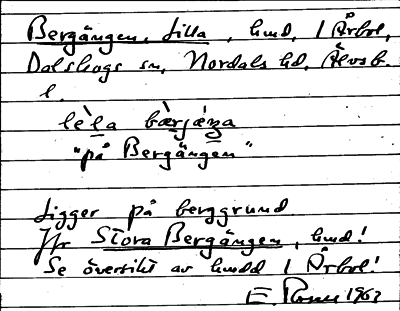 Bergängen, Lilla, hmd, 1 Årbol,
Dalskogs sn, Nordals hd, Älvsb.
l.
lè̀la bærjæ̀ŋa
"på Bergängen"
Ligger på berggrund
Jfr Stora Bergängen, hmd!
Se översikt av hmdd 1 Årbol!
E. 1963